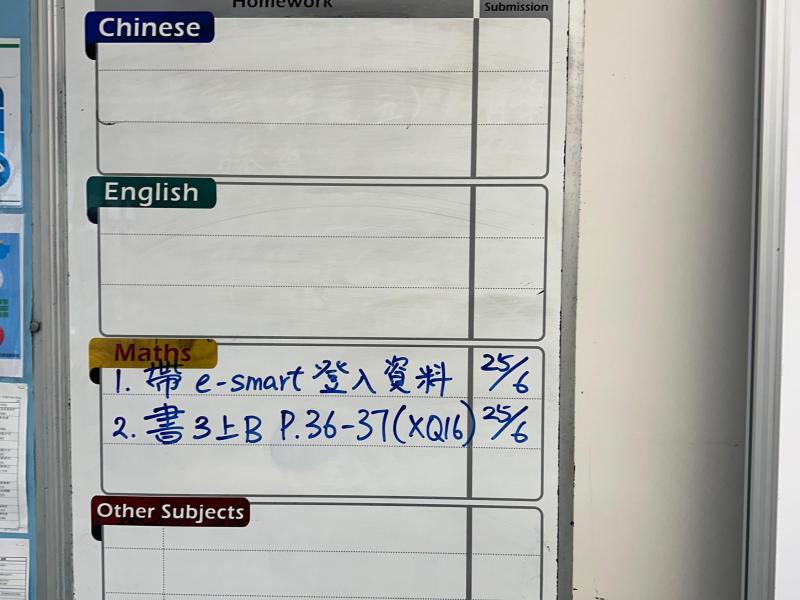 Homework
Submission
Chinese
English
Maths
1. 帶 e-smart 登入資料 25/6
2. 書 3上B P.36-37(XQ16) 25/6
Other Subjects